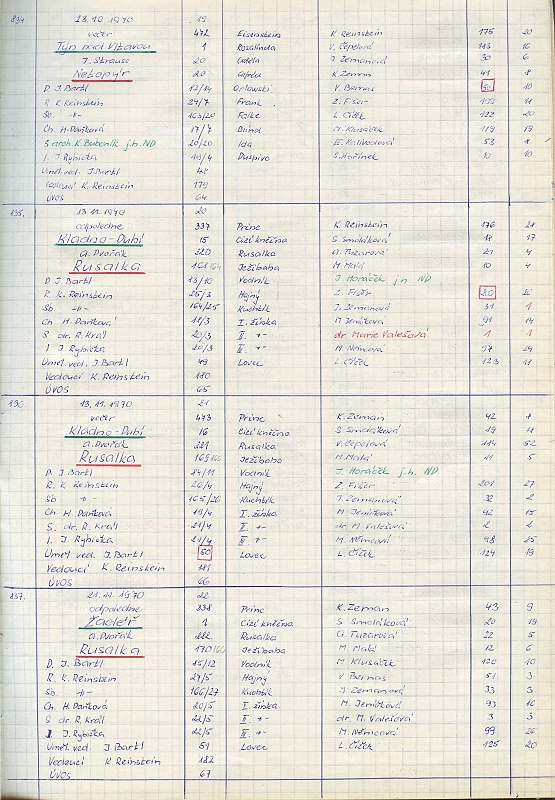 834 23.10.1970 19
večer 472 Eisenstein K. Reinstein 175 20
Týn nad Vltavou 1 Rosalinda V. Čepelová 113 16
J. Strauss 20 Adela J. Zemanová 30 6
Netopýr 20 Alfréd K. Zeman 41 8
D. J. Bartl 12/14 Orlowski V. Bernas 50 10
R. K. Reinstein 24/7 Frank Z. Fišer 199 11
Sb. -"- 163/20 Falke L. Číček 122 20
Ch. H. Daňková 17/7 Blind M. Klusáček 119 19
S arch. K. Bubeník j.h. ND 20/20 Ida E. Kalivodová 53
I. J. Rybička 19/4 Duspivo S. Hořínek 10 10
Uměl. ved. J. Bartl 48
Vedoucí K. Reinstein 179
ÚVOS 64
835. 13.11.1970 20
odpoledne 337 Princ K. Reinstein 176 21
Kladno-Dubí 15 Cizí kněžna S. Smoláková 18 17
a. Dvořák 220 Rusalka A. Tuzarová 21 4
Rusalka 168 Ježibaba M. Malá 10 4
D J. Bartl 13/10 Vodník J. Horáček j.h. ND
R. K. Reinstein 25/3 Hajný Z. Fišer 200 26
Sb -"- 164/25 Kuchtík J. Zemanová 31 1
Ch H. Daňková 18/3 I. žínka M. Jeníčková 91 14
S dr. R. Král 20/3 II. -"- dr. Marie Valešová 1 1
I J. Rybička 20/3 III. -"- M. Němcová 97 24
Uměl. ved. J. Bartl 49 Lovec L. Číček 123 18
Vedoucí K. Reinstein 180
ÚVOS 65
836 13.11.1970 21
večer 473 Princ K. Zeman 42
Kladno-Dubí 16 Cizí kněžna S. Smoláková 19 18
a. Dvořák 221 Rusalka V. Čepelová 114 52
Rusalka 169 Ježibaba M. Malá 11 5
D. J. Bartl 14/11 Vodník J. Horáček j.h. ND
R. K. Reinstein 26/4 Hajný Z. Fišer 201 27
Sb -"- 165/26 Kuchtík J. Zemanová 32 2
Ch H. Daňková 19/4 I. žínka M. Jeníčková 92 15
S. dr. R. Král 21/4 II. -"- dr M. Valešová 2 2
I. J. Rybička 21/4 III. -"- M. Němcová 98 25
Uměl. ved. J. Bartl 50 Lovec L. Číček 124 19
Vedoucí K. Reinstein 181
ÚVOS 66
837. 21.11.1970 22
odpoledne 338 Princ K. Zeman 43 9
Žacléř 1 Cizí kněžna S. Smoláková 20 19
a. Dvořák 222 Rusalka A. Tuzarová 22 5
Rusalka 170 Ježibaba M. Malá 12 6
D. J. Bartl 15/12 Vodník M. Klusáček 120 10
R. K. Reinstein 27/5 Hajný V. Bernas 51 3
Sb -"- 166/27 Kuchtík J. Zemanová 33 3
Ch. H. Daňková 20/5 I. žínka M. Jeníčková 93 16
S dr. R. Král 22/5 II. -"- dr. M. Valešová 3 3
I J. Rybička 22/5 III. -"- M. Němcová 99 26
Uměl. ved. J. Bartl 51 Lovec L. Číček 125 20
Vedoucí K. Reinstein 182
ÚVOS 67